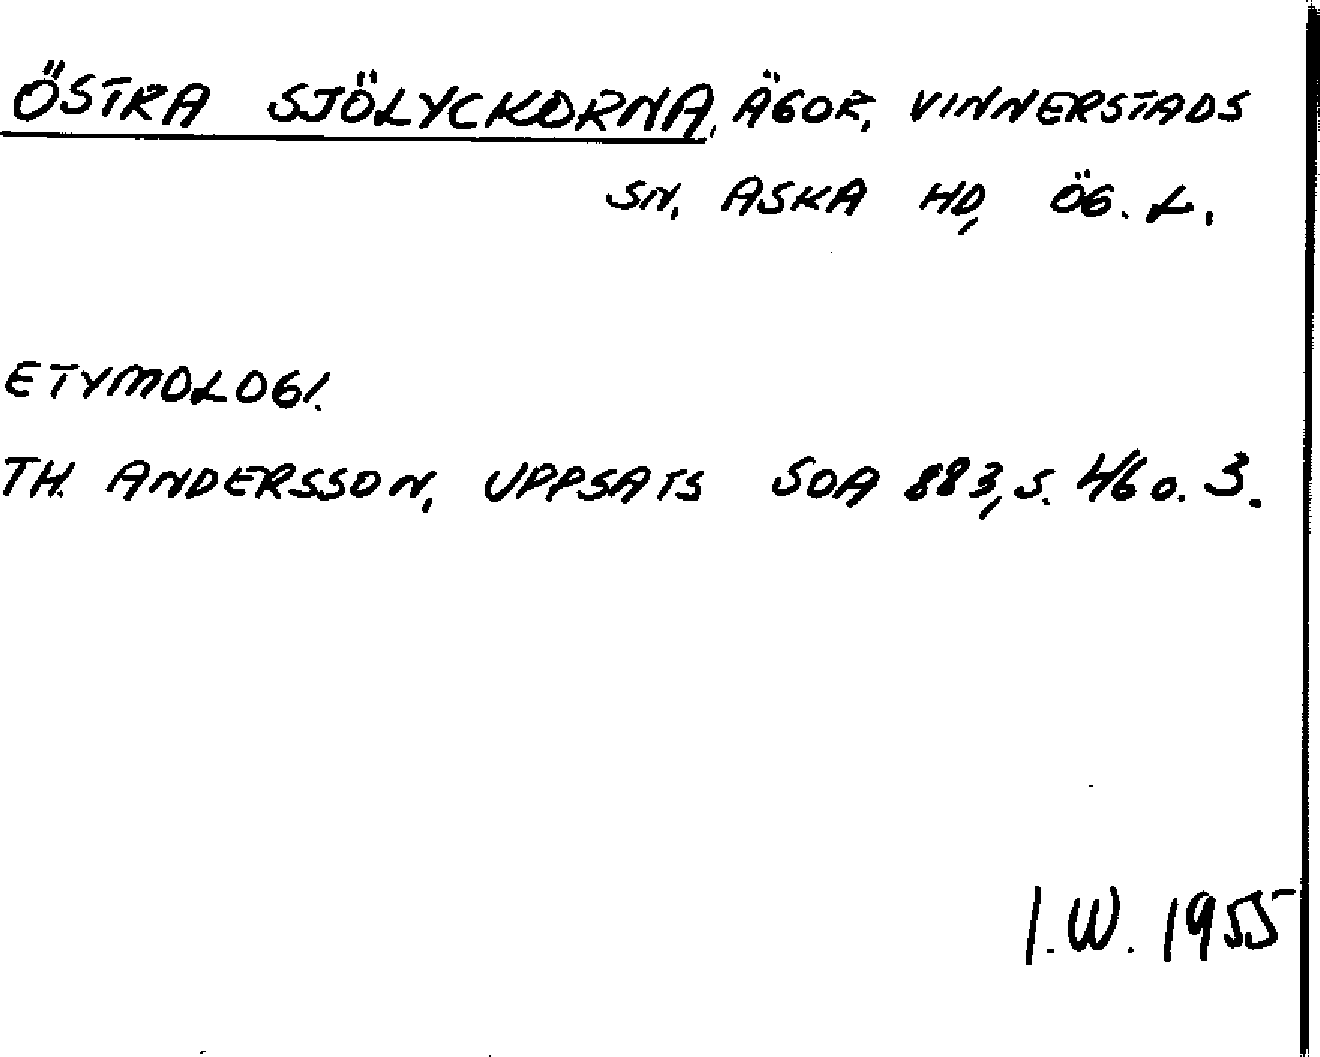 ÖSTRA SJÖLYCKORNA, ÄGOR, VINNERSTADS
SN, ASKA HD, ÖG. L.
ETYMOLOGI.
TH. ANDERSSON, UPPSATS SOA 883, S. 46 o. 3.
I.W. 1955